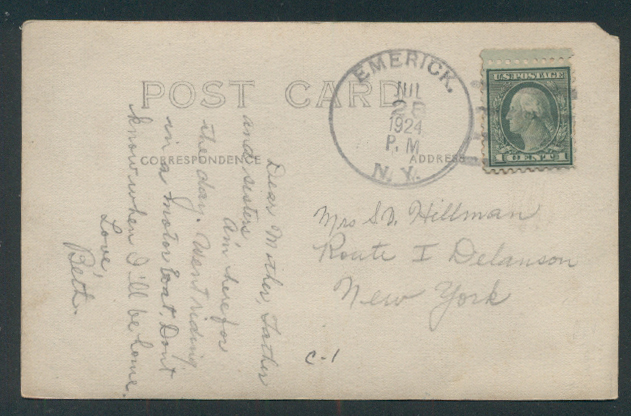 POST CARD
CORRESPONDENCE
ADDRESS
EMERICK.
25
1924
P.M
N.Y.
U.S. POSTAGE
1 CENT 1
Dear Mother, Father
and sisters,
Am here for
the day. Went riding
in a motor boat. Don't
know when I'll be home.
Love,
Beth.
Mrs S.D. Hillman
Route 1 Delanson
New York
C-1